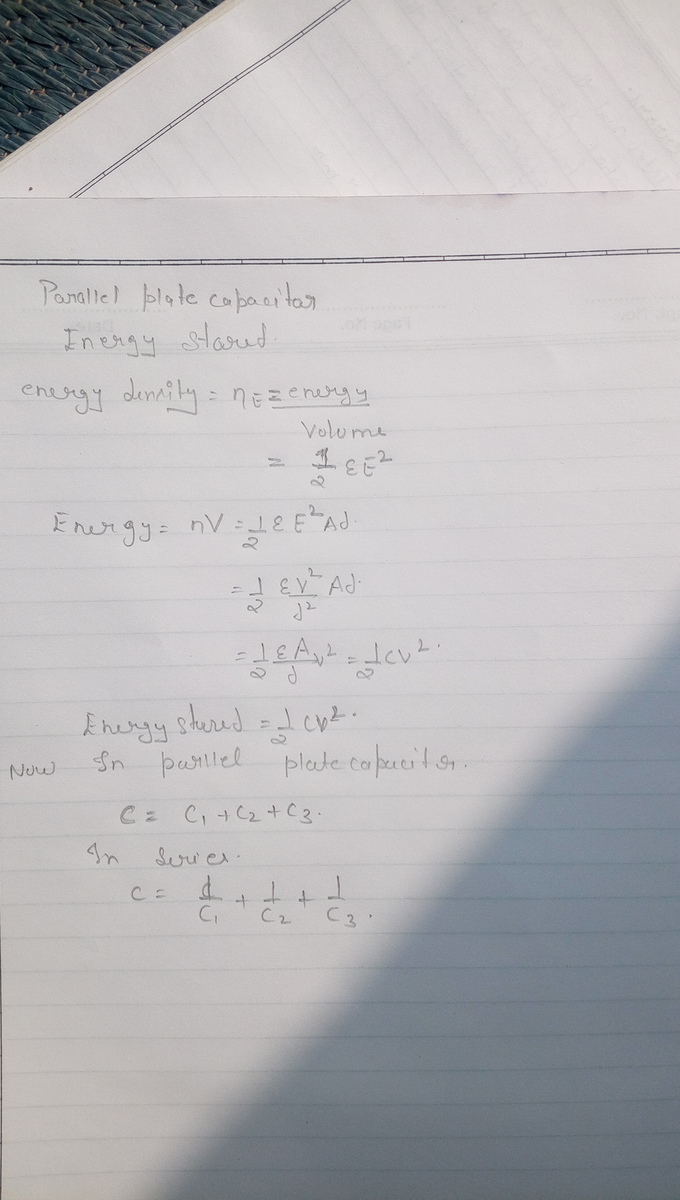 Parallel plate capacitor
Energy stored.
energy density = nE = energy
Volume
= 1/2 εE²
Energy = nV = 1/2 ε E² Ad.
= 1/2 εV²/d² Ad.
= 1/2 εA/d V² = 1/2 CV².
Energy stored = 1/2 CV².
Now In parllel plate capacitor.
C = C₁ + C₂ + C₃.
In Series.
C = 1/C₁ + 1/C₂ + 1/C₃.